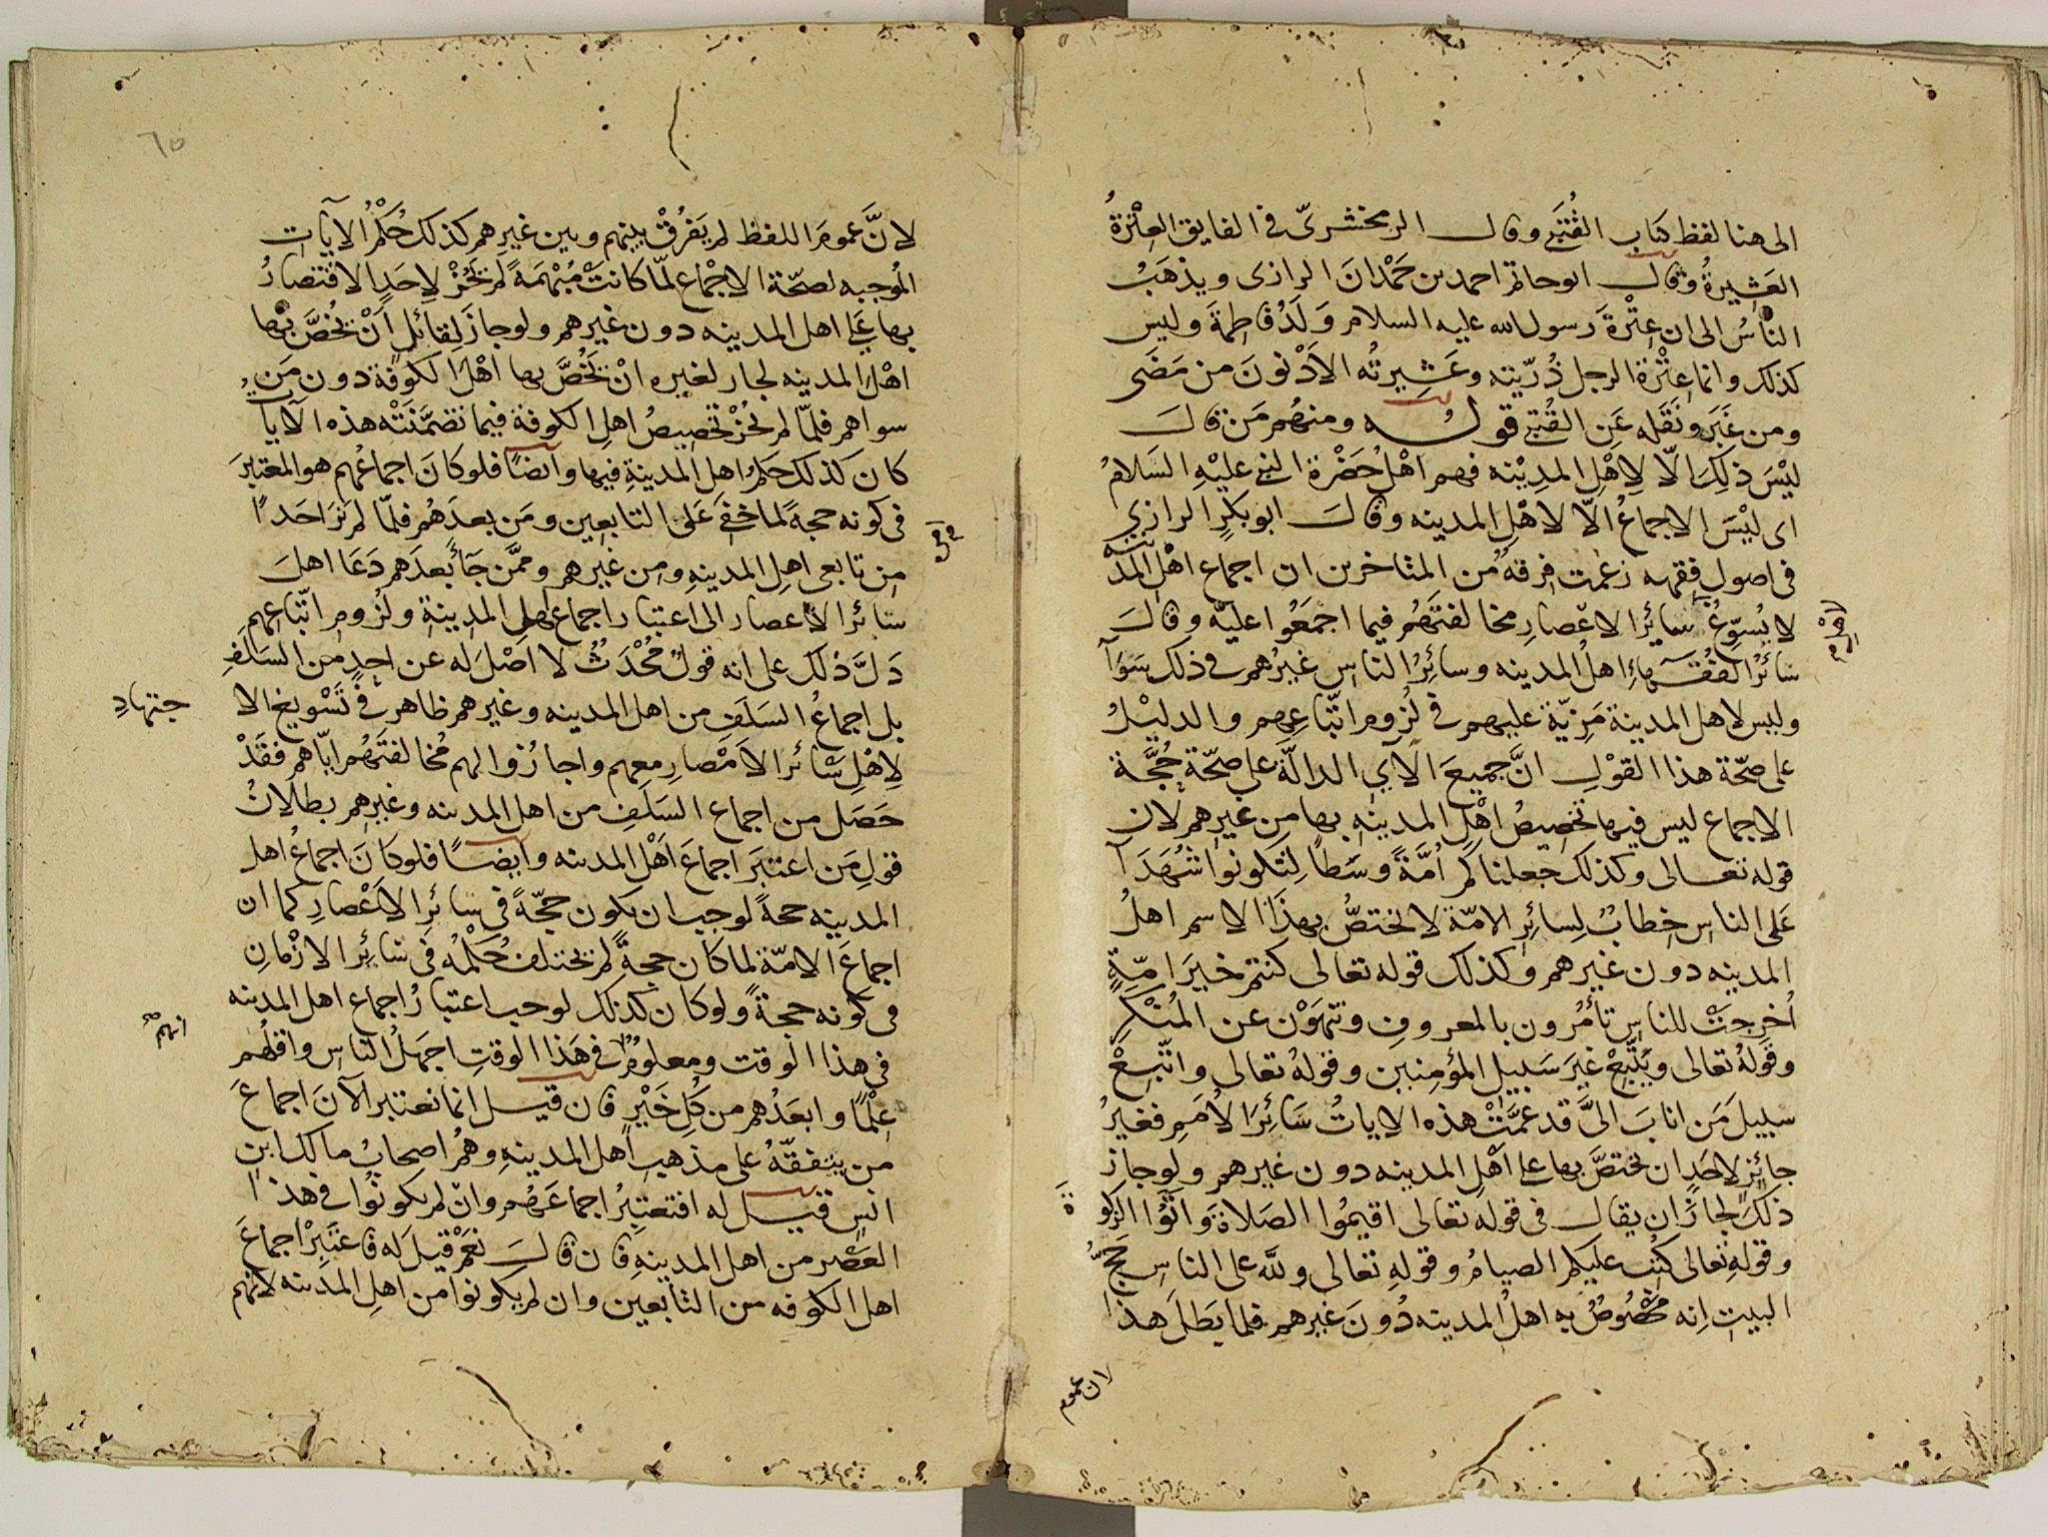 الى هنا لفظ كتاب القُتَبي وقال الزمخشريّ في الفايق العِتْرةُ
العَشِيرةُ وقال ابو حاتم احمد بن حَمْدانَ الرازى ويذهَبُ
الناسُ الى ان عِتْرةَ رسول الله عليه السلام وَلَدُ فاطِمةَ وليس
كذلك وانما عِتْرةُ الرجل ذُرّيته وعَشِيرتُه الاَدْنَونَ من مَضَى
ومن غَبَرَ ونَقَله عَنِ القُتَبي قولـه ومنهُم مَن قالَ
ليْسَ ذلِكَ الّا لِاهْلِ المدِيْنه فهم اهْلُ حَضْرة النبي عليْهِ السَلامُ
اى ليْسَ الاجماعُ الّا لاهْلِ المدينه وقالَ ابو بكرٍ الرازي
في اصولِ فقهه زعمت فِرقةٌ من المتاخرين ان اجماع اهْل المدينة
لا يُسوّغُ لاهْل سائرِ الاعْصارِ مخالفتَهُم فيما اجمَعُوا عليْه وقالَ
سائرُ الفُقَهآءِ اهلُ المدينه وسائرُ الناس غيرُهم في ذلك سَوَآ
وليس لاهل المدينة مَزِيّة عليهم في لُزوم اتّباعِهم والدليْلُ
على صحّة هذا القوْلِ انَّ جميعَ الآي الدالّة على صحّة حُجَّة
الاجماع ليس فيها تخصِيصُ اهْلِ المدينه بها مِن غيرِهم لان
قوله تعالى وكذلك جعلناكم اُمَّةً وسَطاً لِتكونوا شُهَدَآ
عَلى الناس خِطابٌ لِسائِر الامّة لا يختصُّ بهذَا الاسم اهلُ
المدينه دون غيرهم وكذلك قوله تعالى كنتم خيرَ امّةٍ
اُخرِجَتْ للناسِ تأمُرون بالمعروفِ وتنهَوْن عن المُنْكَرِ
وقولهُ تعالى ويَتَّبِعْ غيرَ سَبيلِ المؤمِنين وقولهُ تعالى واتّبِعْ
سبيلَ مَن انابَ اليَّ قد عمَّتْ هذه الايات سَائِرَ الاُمَمِ فغيرُ
جائزٍ لاحَدٍ ان يختصَّ بها على اهْل المدينه دون غيرهم ولو جاز
ذلك لجازَ ان يقال في قوله تعالى اقيمُوا الصَلاةَ واتُوا الزكوةَ
وقولِه تعالى كُتِبَ عليكم الصيامُ وقوله تعالى ولله على الناسِ حَجُّ
البيتِ اِنه مخصُوصٌ به اهلُ المدينه دُونَ غيرهم فلما بَطَلَ هذا
لان عموم
٦٥
لانَّ عمومَ اللفظ لم يَفرُقْ بينهم وبين غيرِهم كذلك حُكمُ الايآتِ
المُوجبه لصحّة الاجْماع لمّا كانتْ مُبْهَمَةً لم يَجُزْ لاِحَدٍ الاقتصارُ
بها علَى اهل المدينه دون غيرهم ولو جازَ لِقائلٍ أَنْ يَخُصَّ بها
اهْلَ المدينه لجاز لغيره انْ يَخُصَّ بها اهْلَ الكوفة دون مَن
سواهم فلمّا لم يَجُزْ تخصِيصُ اهلِ الكوفة فيما تضمَّنَتْه هذه الآيآت
كان كذلك حكمُ اهل المدينةِ فيها وايضًا فلو كانَ اجماعُهم هو المعتبرَ
في كونه حجةً لما خفِيَ عَلى التابعِين ومَن بعدَهُم فلمّا لم نَرَ احَدًا
مِن تابعى اهلِ المدينهِ ومِن غيرهم وممَّن جآءَ بعدَهم دَعَا اهلَ
سائرِ الاعصار الى اعتبارِ اجماع اهلِ المدينةِ ولُزومِ اتّباعِهم
دَلَّ ذلك على انه قولٌ مُحْدَثٌ لا اصْلَ له عن احِدٍ من السَلَفِ
بل اجماعُ السَلَفِ من اهل المدينه وغيرهم ظاهر في تَسْويغ الا جتهادِ
لِاهْلِ سَائر الاَمْصارِ معهم واجازُوا لهم مُخالفتَهُم ايّاهم فقَدْ
حَصَل من اجماعِ السَلَفِ من اهل المدينه وغيرِهم بطلانُ
قولِ مَن اعتبَرَ اجماعَ اَهْل المدينه وايضًا فلو كانَ اجماعُ اهلِ
المدينه حجةً لوجب ان يكون حجّةً في سائرِ الاَعْصارِ كما ان
اجماعَ الامّة لما كان حجةً لم يختلف حُكْمُه في سائِر الازْمانِ
في كونه حجةً ولو كان كذلك لوجب اعتبارُ اجماع اهل المدينه
في هذا الوقت ومعلومٌ انهُم في هَذا الوقتِ اجهَلُ الناسِ واقلُّهُم
عِلْمًا وابعَدُهم من كُلِّ خَيْرٍ فان قيل انما نعتبر الآنَ اجماعَ
من يتفقّهُ على مذهبِ اهل المدينهِ وهُم اصحابُ مالك ابنِ
انسٍ قيل له افتَعتبِرُ اجماعَهُم وان لم يكونُوا في هذا
العَصْرِ من اهل المدينهِ فان قالَ نعَمْ قيلَ له فاعتَبِرْ اجماعَ
اهل الكوفه من التابعين وان لم يكونوا من اهلِ المدينه لانهم